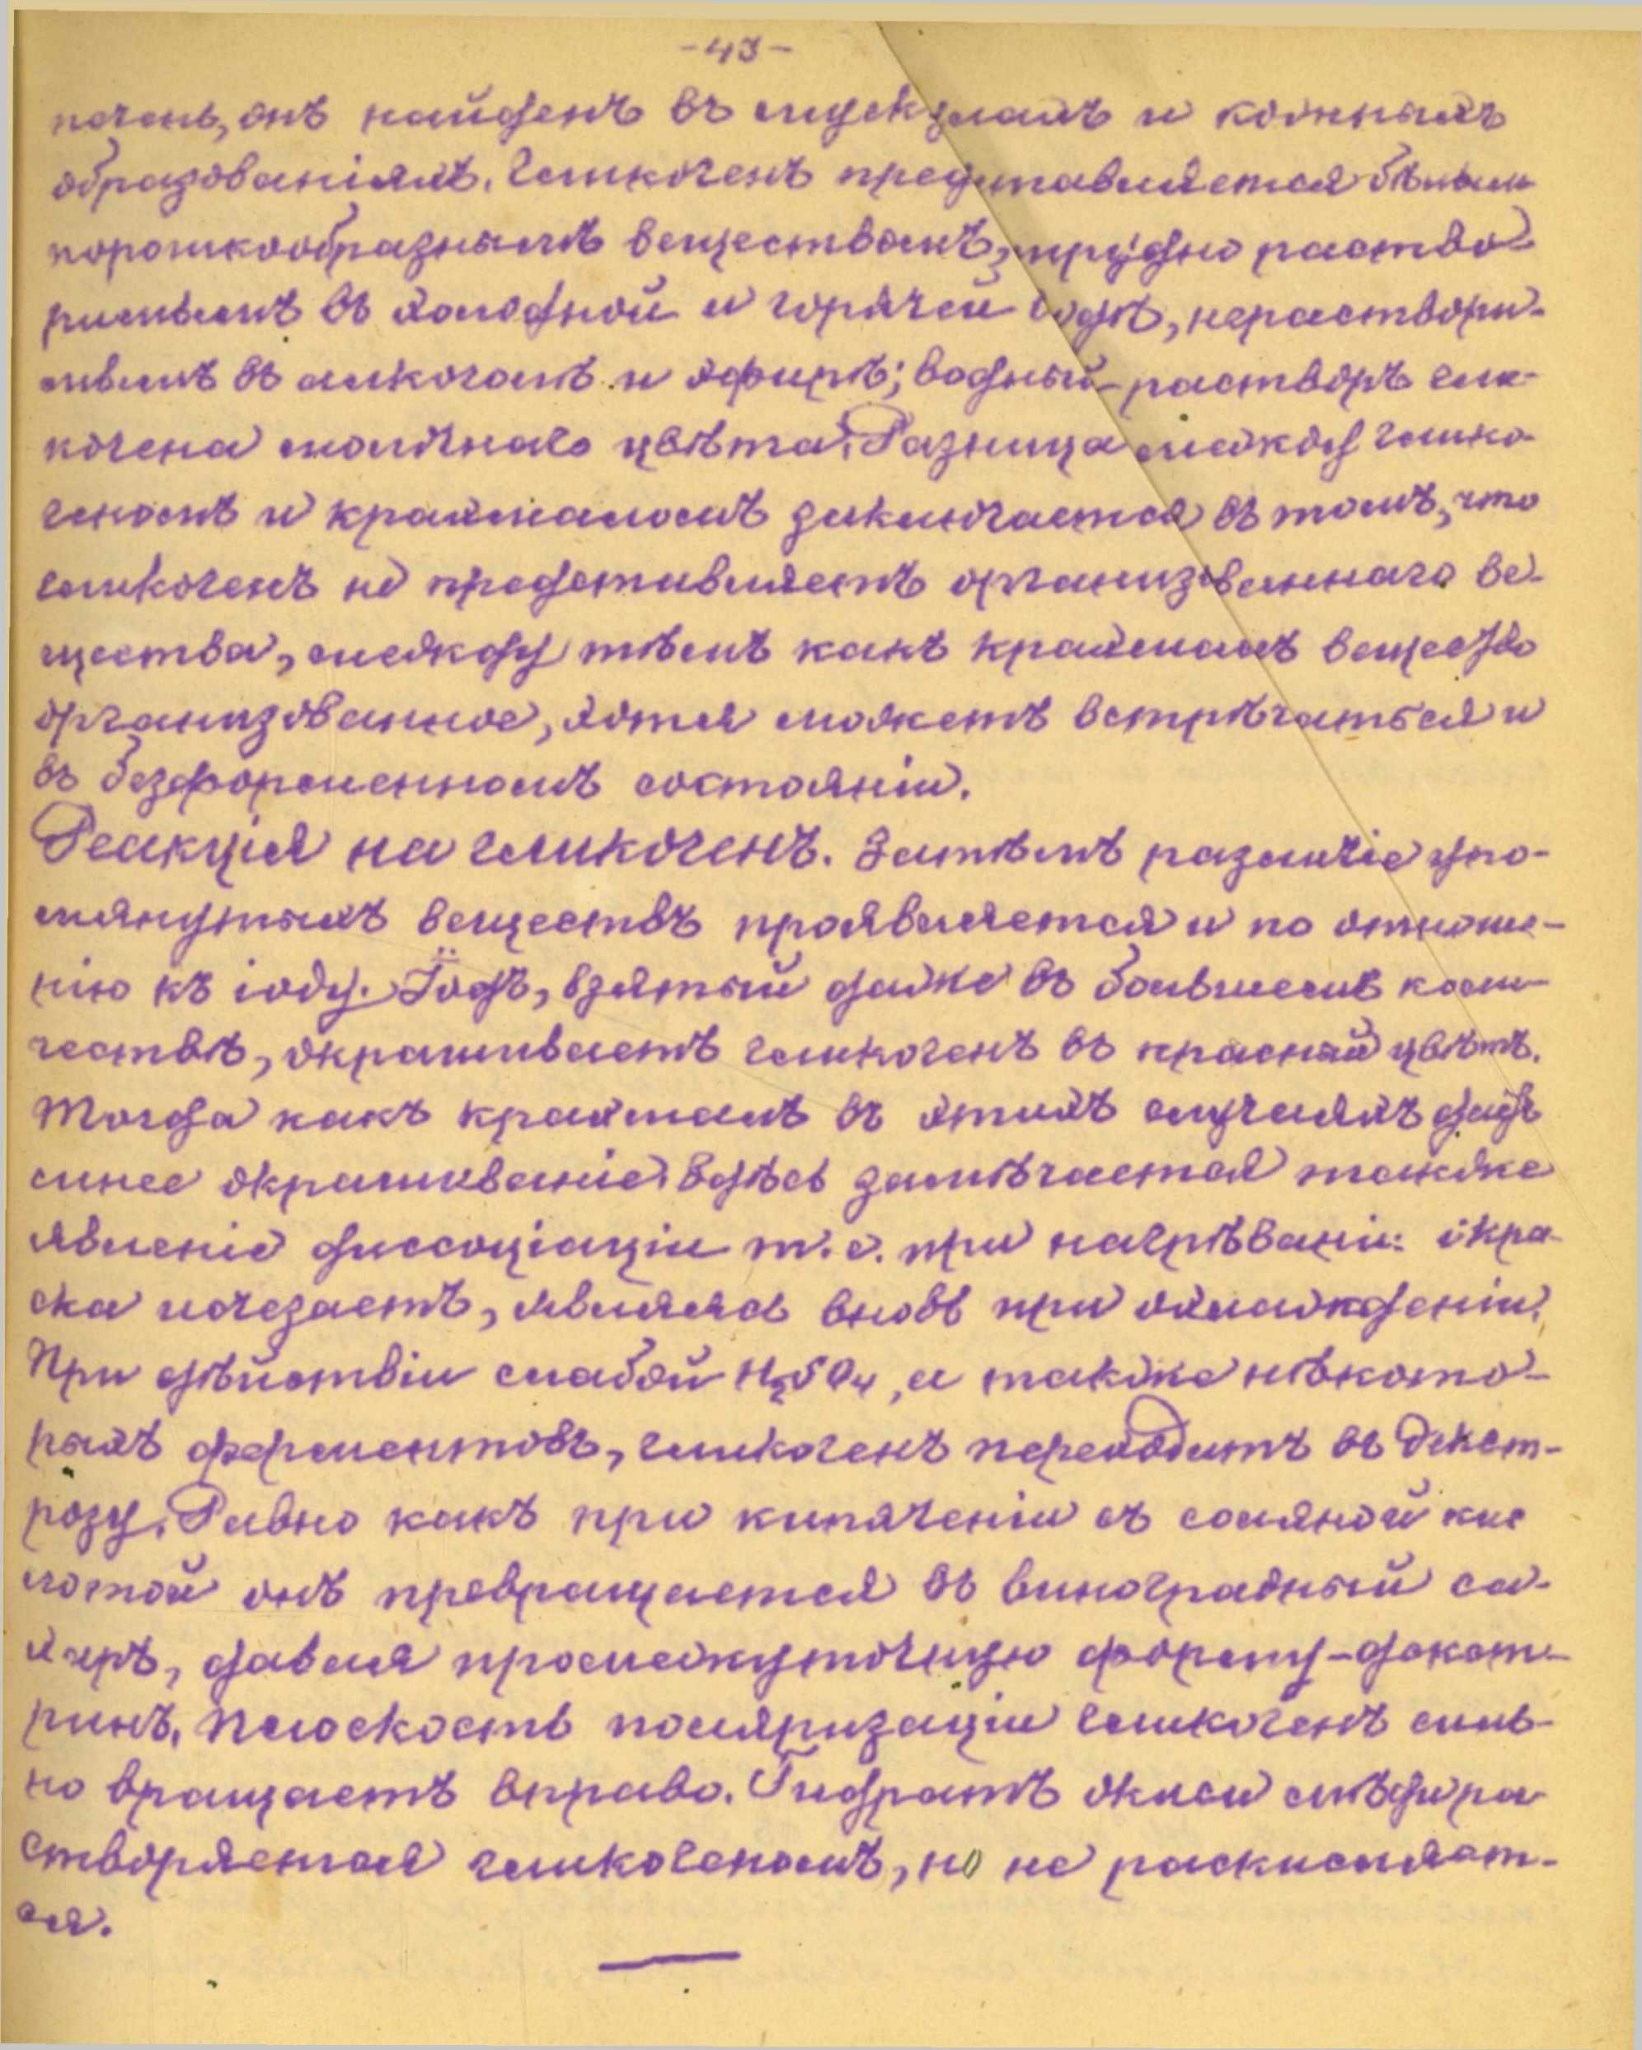 -43-
печень, онъ найденъ въ мускулахъ и кожныхъ
образованіяхъ. Гликогенъ представляется бѣлымъ
порошкообразнымъ веществомъ, трудно раство-
римымъ въ холодной и горячей водѣ, нераствори-
мымъ въ алкоголѣ и эфирѣ; водный растворъ гли-
когена молочнаго цвѣта. Разница между глико-
геномъ и крахмаломъ заключается въ томъ, что
гликогенъ не представляетъ организованнаго ве-
щества, между тѣмъ какъ крахмалъ вещество
организованное, хотя можетъ встрѣчаться и
въ безформенномъ состояніи.
Реакція на гликогенъ. Затѣмъ различіе упо-
мянутыхъ веществъ проявляется и по отноше-
нію къ іоду. Іодъ, взятый даже въ большемъ коли-
чествѣ, окрашиваетъ гликогенъ въ красный цвѣтъ.
Тогда какъ крахмалъ въ этихъ случаяхъ даетъ
синее окрашиваніе. Здѣсь замѣчается также
явленіе диссоціаціи т.е. при нагрѣваніи окра-
ска исчезаетъ, являясь вновь при охлажденіи.
При дѣйствіи слабой H2SO4, а также нѣкото-
рыхъ ферментовъ, гликогенъ переходитъ въ декст-
розу. Равно какъ при кипяченіи съ соляной кис
лотой онъ превращается въ виноградный са-
харъ, давая промежуточную форму-декст-
ринъ. Плоскость поляризаціи гликогенъ силь-
но вращаетъ вправо. Гидратъ окиси мѣди ра
створяется гликогеномъ, но не раскисляет-
ся.